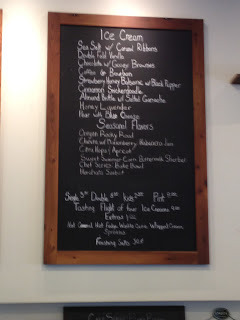 Ice Cream
Sea Salt w/ Caramel Ribbons
Double Fold Vanilla
Chocolate w/ Gooey Brownies
Coffee & Bourbon
Strawberry Honey Balsamic w/ Black Pepper
Cinnamon Snickerdoodle
Almond Brittle w/ Salted Ganache
Honey Lavender
Pear with Blue Cheese
Seasonal Flavors
Oregon Rocky Road
Chevre w/ Marionberry Habanero Jam
Hops / Apricot
Sweet Summer Corn Buttermilk Sherbet
Chef Series: Bake Bread
Sorbet
Single Double Kids Pint
Tasting Flight of four Ice Creams
Extras
Hot Caramel, Hot Fudge, Waffle Cone, Whipped Cream,
Sprinkles
Finishing Salts